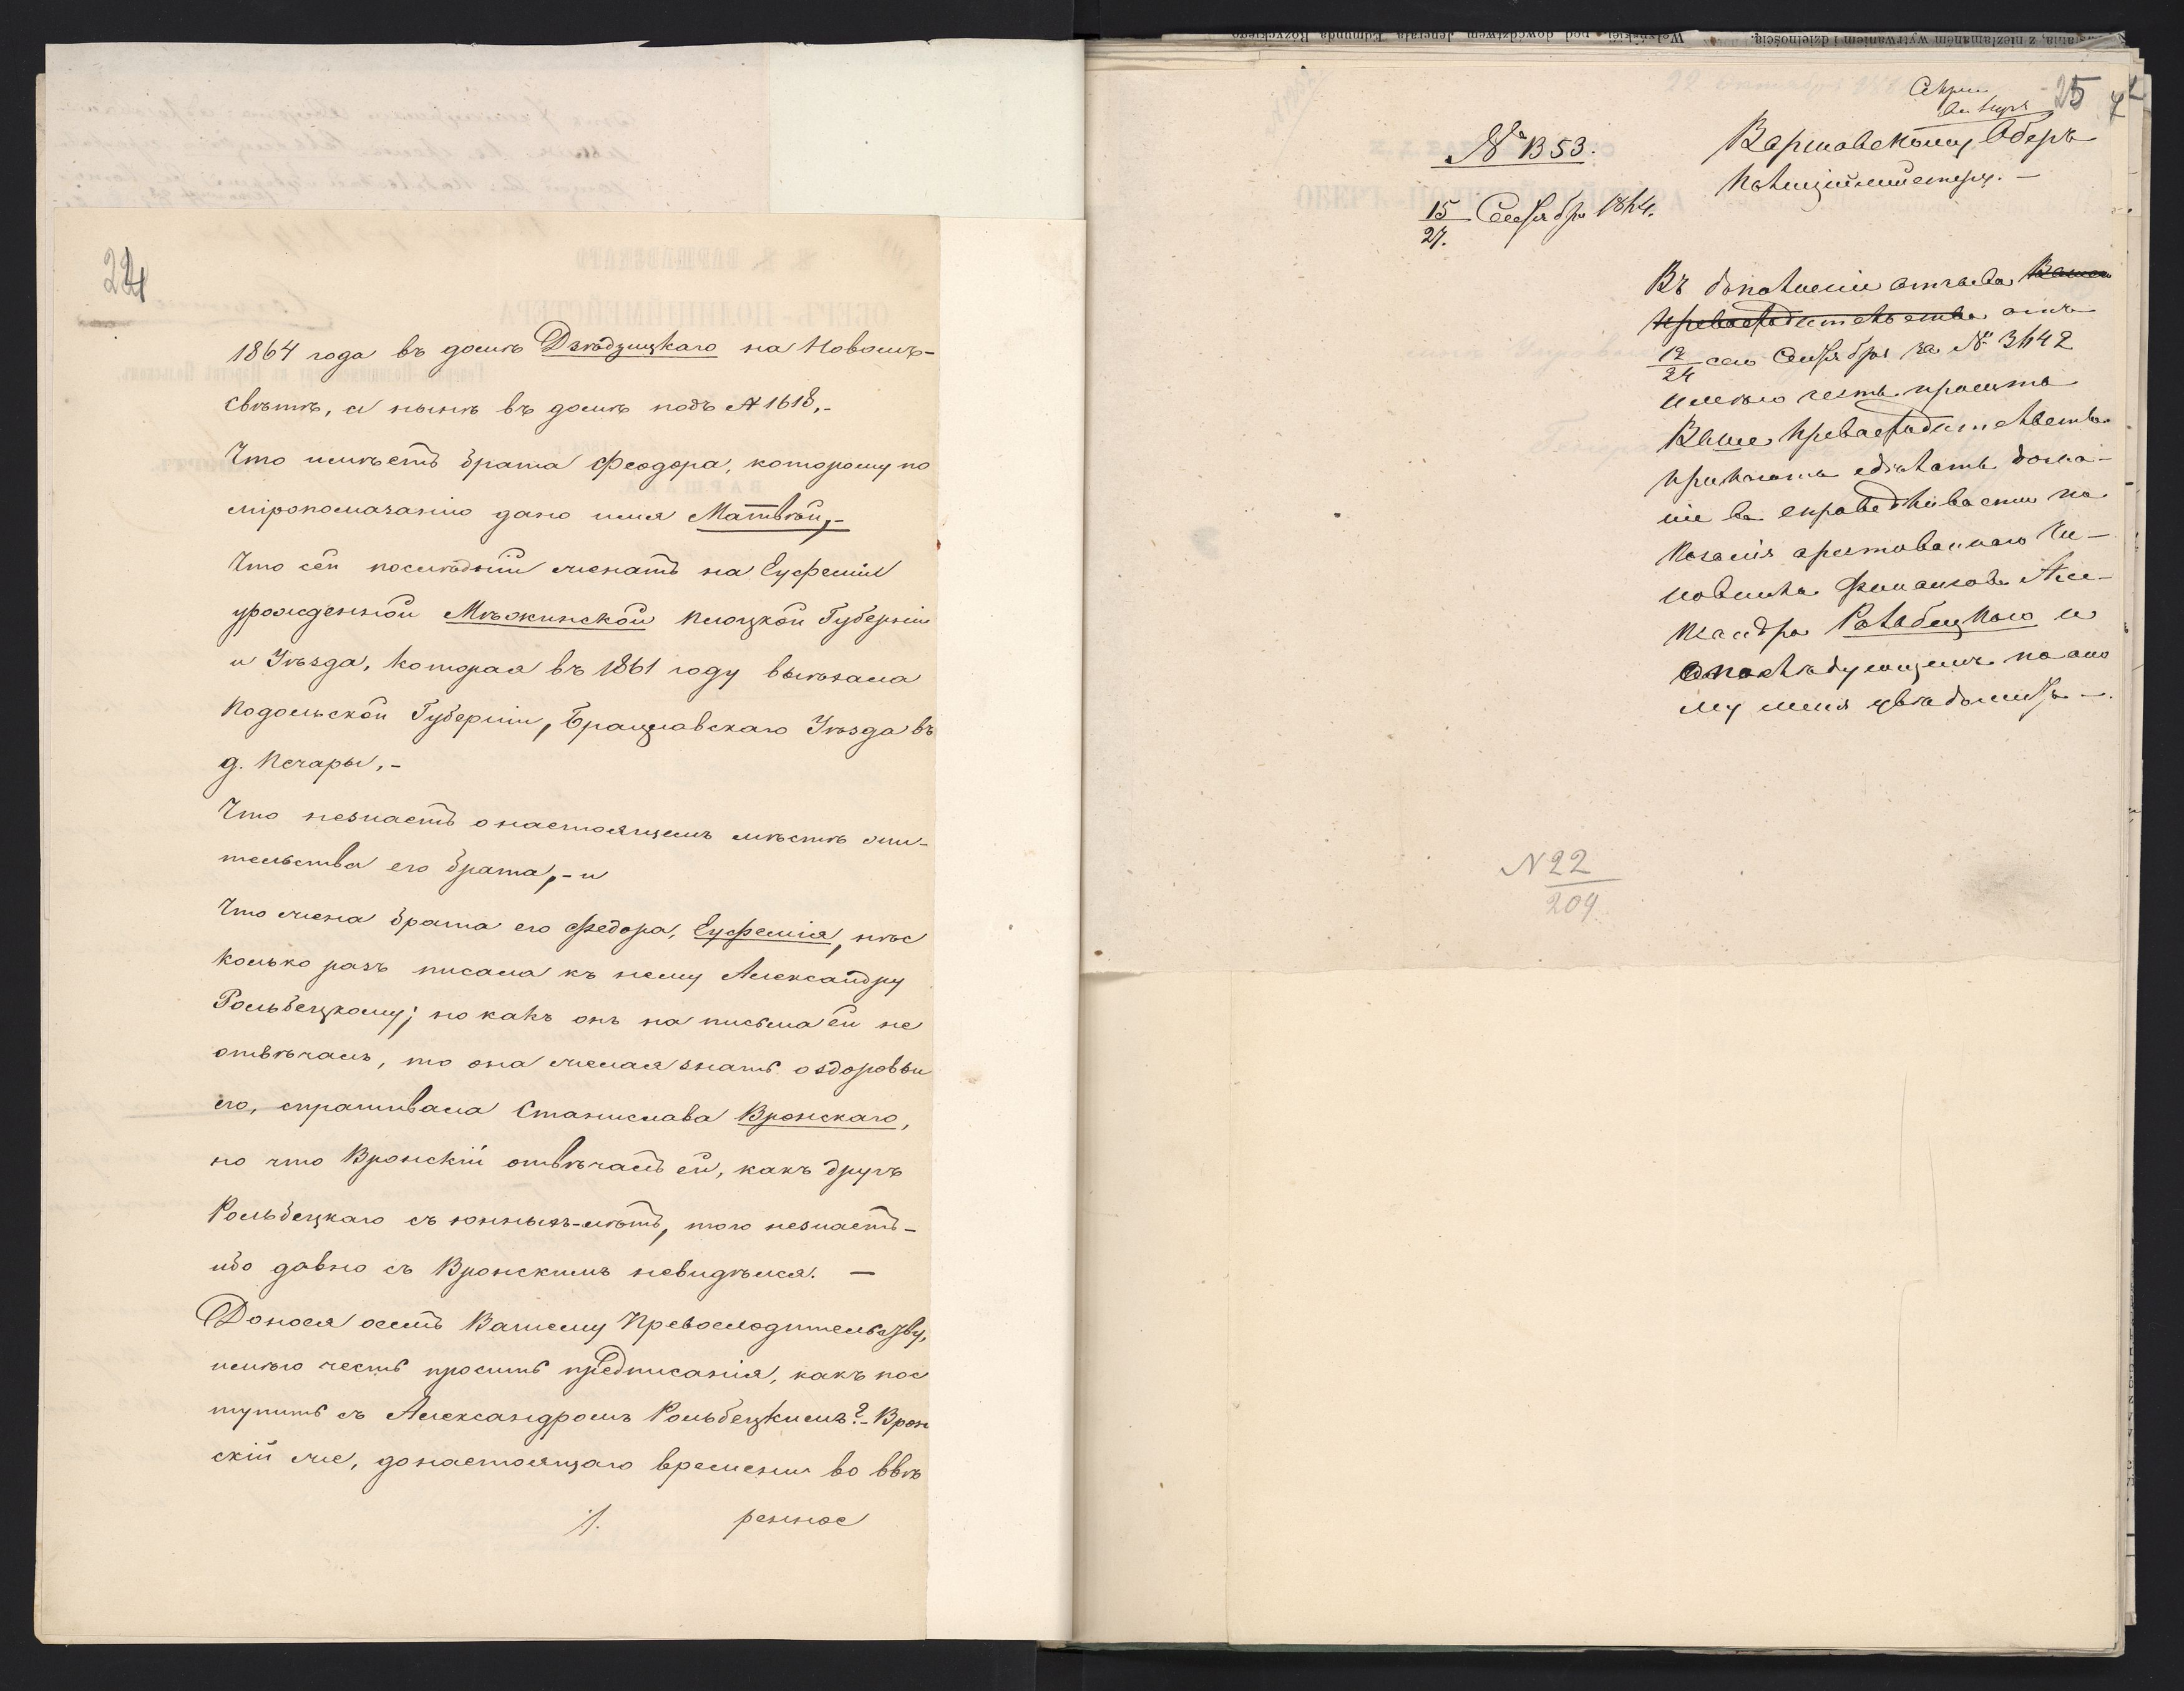 24
1864 года въ домѣ Дзѣдзицкаго на Новомъ-
свѣтѣ, а нынѣ въ домѣ подъ № 1618,-
Что имѣетъ брата Феодора, которому по
мѵропомазанію дано имя Матвѣй,-
Что сей послѣдній женатъ на Еуфеміи
урожденной Мѣжинской Плоцкой Губерніи
и Уѣзда, которая въ 1861 году выѣхала
Подольской Губерніи, Брацлавскаго Уѣзда въ
д. Печары,-
Что незнаетъ о настоящемъ мѣстѣ жи-
тельства его брата,- и
Что жена брата его Федора, Еуфемія, нѣс
колько разъ писала къ нему Александру
Рольбецкому; но какъ онъ на письма ей не
отвѣчалъ, то она желая знать о здоровьи
его, спрашивала Станислава Вронскаго,
но что Вронскій отвѣчалъ ей, какъ другъ
Рольбецкаго съ юныхъ-лѣтъ, того незнаетъ-
ибо давно съ Вронскимъ невидѣлся. —
Донося о семъ Вашему Превосходительству,
имѣю честь просить предписанія, какъ пос
тупить съ Александромъ Рольбецкимъ?- Врон
скій же, до настоящаго времени во ввѣ
./. ренное
25
№ 1353.
Варшавскому Оберъ
Полиціймейстеру. —
15/27. Сентября 1864.
Въ дополненіи отзыва Вашего
Превосходительства отъ
12/24 сего Сентября за № 3642
имѣю честь просить
Ваше Превосходительство
приказать сдѣлать дозна-
ніе въ справедливости по
казанія арестованнаго Чи-
новника Финансовъ Але-
ксандра Рольбецкаго и
о послѣдующемъ по ано
му меня увѣдомить —.
N 22
209